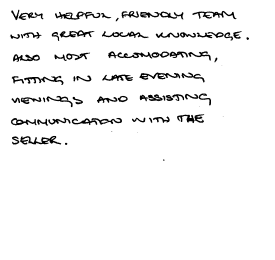 VERY HELPFUL, FRIENDLY TEAM
WITH GREAT LOCAL KNOWLEDGE.
ALSO MOST ACCOMODATING,
FITTING IN LATE EVENING
VIEWINGS AND ASSISTING
COMMUNICATION WITH THE
SELLER.